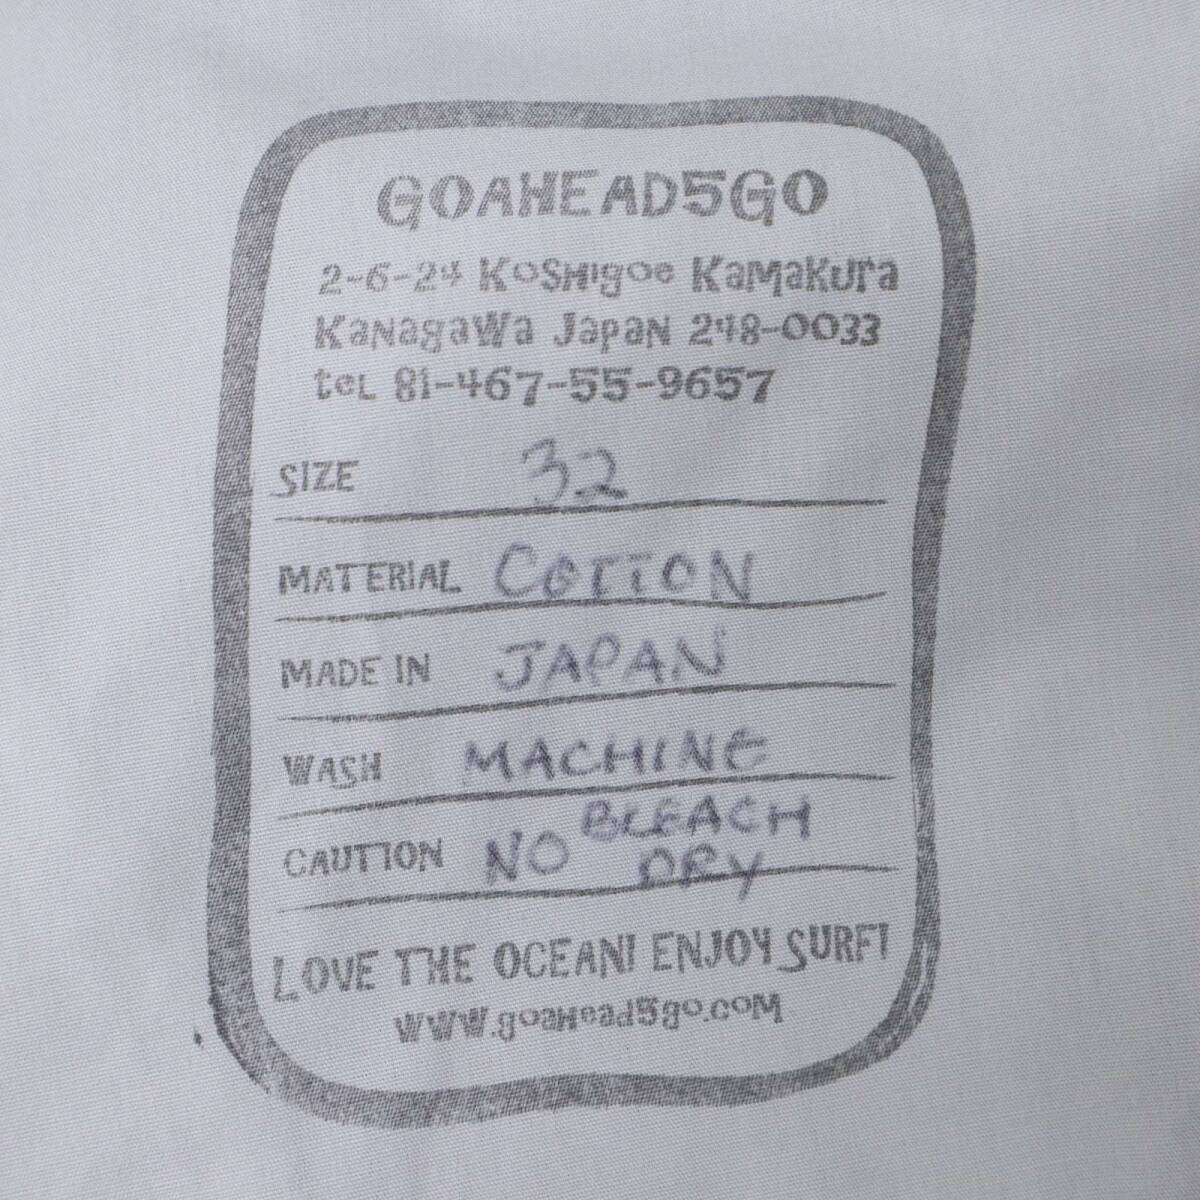 GOAHEAD5GO
2-6-24 KOSHIgOe KaMaKUra
KaNagaWa JapaN 248-0033
teL 81-467-55-9657
SIZE 32
MATERIAL COTTON
MADE IN JAPAN
WASH MACHINE
CAUTION NO BLEACH
DRY
LOVE THE OCEAN! ENJOY SURF!
WWW.goaHead5go.coM